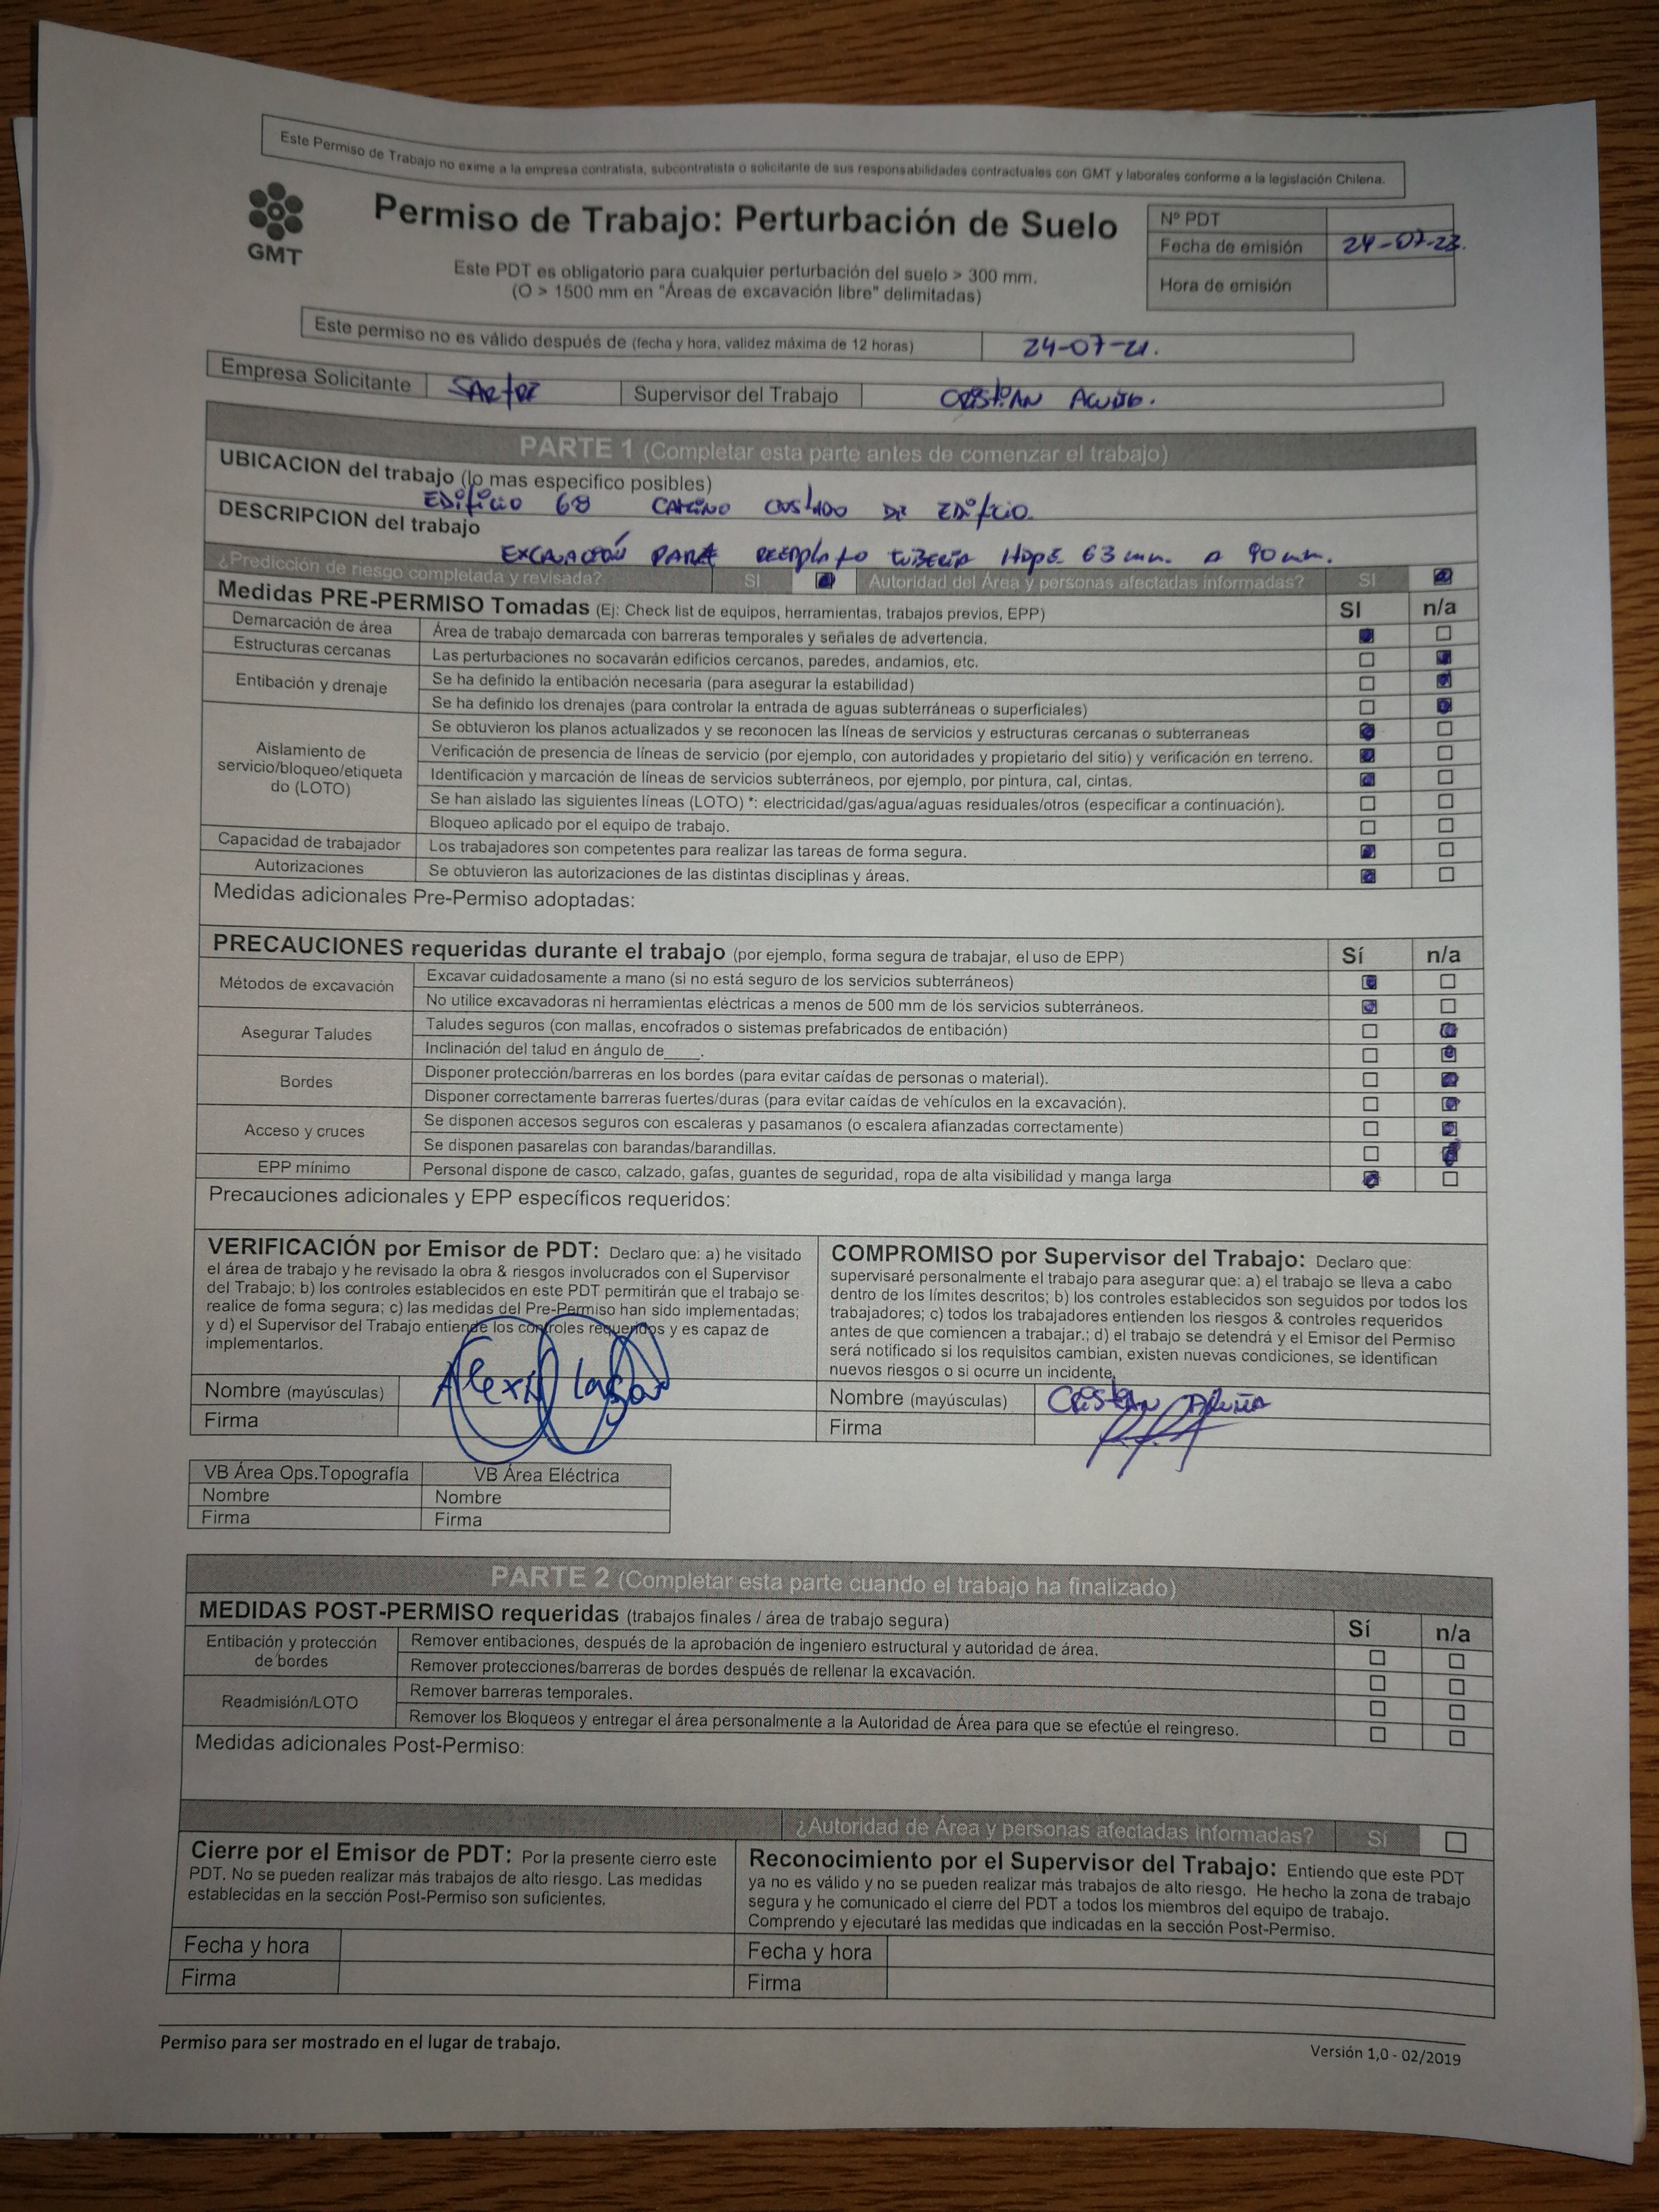 Este Permiso de Trabajo no exime a la empresa contratista, subcontratista o solicitante de sus responsabilidades contractuales con GMT y laborales conforme a la legislación Chilena.
GMT
Permiso de Trabajo: Perturbación de Suelo
Este PDT es obligatorio para cualquier perturbación del suelo > 300 mm.
(O > 1500 mm en "Áreas de excavación libre" delimitadas)
Nº PDT
Fecha de emisión 24-07-23.
Hora de emisión
Este permiso no es válido después de (fecha y hora, validez máxima de 12 horas) 24-07-21.
Empresa Solicitante Supervisor del Trabajo CRISTIAN ACUÑA.
PARTE 1 (Completar esta parte antes de comenzar el trabajo)
UBICACION del trabajo (lo mas especifico posibles)
EDIFICIO 68 CAMINO COSTADO DE EDIFICIO.
DESCRIPCION del trabajo
EXCAVACIÓN PARA REEMPLAZO TUBERIA HDPE 63 mm. A 90 mm.
¿Predicción de riesgo completada y revisada? SI Autoridad del Área y personas afectadas informadas? SI
Medidas PRE-PERMISO Tomadas (Ej: Check list de equipos, herramientas, trabajos previos, EPP) SI n/a
Demarcación de área Área de trabajo demarcada con barreras temporales y señales de advertencia.
Estructuras cercanas Las perturbaciones no socavarán edificios cercanos, paredes, andamios, etc.
Entibación y drenaje Se ha definido la entibación necesaria (para asegurar la estabilidad)
Se ha definido los drenajes (para controlar la entrada de aguas subterráneas o superficiales)
Aislamiento de servicio/bloqueo/etiquetado (LOTO) Se obtuvieron los planos actualizados y se reconocen las líneas de servicios y estructuras cercanas o subterraneas
Verificación de presencia de líneas de servicio (por ejemplo, con autoridades y propietario del sitio) y verificación en terreno.
Identificación y marcación de líneas de servicios subterráneos, por ejemplo, por pintura, cal, cintas.
Se han aislado las siguientes líneas (LOTO) *: electricidad/gas/agua/aguas residuales/otros (especificar a continuación).
Bloqueo aplicado por el equipo de trabajo.
Capacidad de trabajador Los trabajadores son competentes para realizar las tareas de forma segura.
Autorizaciones Se obtuvieron las autorizaciones de las distintas disciplinas y áreas.
Medidas adicionales Pre-Permiso adoptadas:
PRECAUCIONES requeridas durante el trabajo (por ejemplo, forma segura de trabajar, el uso de EPP) Sí n/a
Métodos de excavación Excavar cuidadosamente a mano (si no está seguro de los servicios subterráneos)
No utilice excavadoras ni herramientas eléctricas a menos de 500 mm de los servicios subterráneos.
Asegurar Taludes Taludes seguros (con mallas, encofrados o sistemas prefabricados de entibación)
Inclinación del talud en ángulo de____.
Bordes Disponer protección/barreras en los bordes (para evitar caídas de personas o material).
Disponer correctamente barreras fuertes/duras (para evitar caídas de vehículos en la excavación).
Acceso y cruces Se disponen accesos seguros con escaleras y pasamanos (o escalera afianzadas correctamente)
Se disponen pasarelas con barandas/barandillas.
EPP mínimo Personal dispone de casco, calzado, gafas, guantes de seguridad, ropa de alta visibilidad y manga larga
Precauciones adicionales y EPP específicos requeridos:
VERIFICACIÓN por Emisor de PDT: Declaro que: a) he visitado
el área de trabajo y he revisado la obra & riesgos involucrados con el Supervisor
del Trabajo; b) los controles establecidos en este PDT permitirán que el trabajo se
realice de forma segura; c) las medidas del Pre-Permiso han sido implementadas;
y d) el Supervisor del Trabajo entiende los controles requeridos y es capaz de
implementarlos.
Nombre (mayúsculas)
Firma
COMPROMISO por Supervisor del Trabajo: Declaro que:
supervisaré personalmente el trabajo para asegurar que: a) el trabajo se lleva a cabo
dentro de los límites descritos; b) los controles establecidos son seguidos por todos los
trabajadores; c) todos los trabajadores entienden los riesgos & controles requeridos
antes de que comiencen a trabajar.; d) el trabajo se detendrá y el Emisor del Permiso
será notificado si los requisitos cambian, existen nuevas condiciones, se identifican
nuevos riesgos o si ocurre un incidente.
Nombre (mayúsculas) CRISTIAN ACUÑA
Firma
VB Área Ops.Topografía VB Área Eléctrica
Nombre Nombre
Firma Firma
PARTE 2 (Completar esta parte cuando el trabajo ha finalizado)
MEDIDAS POST-PERMISO requeridas (trabajos finales / área de trabajo segura) Sí n/a
Entibación y protección de bordes Remover entibaciones, después de la aprobación de ingeniero estructural y autoridad de área.
Remover protecciones/barreras de bordes después de rellenar la excavación.
Readmisión/LOTO Remover barreras temporales.
Remover los Bloqueos y entregar el área personalmente a la Autoridad de Área para que se efectúe el reingreso.
Medidas adicionales Post-Permiso:
¿Autoridad de Área y personas afectadas informadas? Sí
Cierre por el Emisor de PDT: Por la presente cierro este
PDT. No se pueden realizar más trabajos de alto riesgo. Las medidas
establecidas en la sección Post-Permiso son suficientes.
Fecha y hora
Firma
Reconocimiento por el Supervisor del Trabajo: Entiendo que este PDT
ya no es válido y no se pueden realizar más trabajos de alto riesgo. He hecho la zona de trabajo
segura y he comunicado el cierre del PDT a todos los miembros del equipo de trabajo.
Comprendo y ejecutaré las medidas que indicadas en la sección Post-Permiso.
Fecha y hora
Firma
Permiso para ser mostrado en el lugar de trabajo.
Versión 1,0 - 02/2019